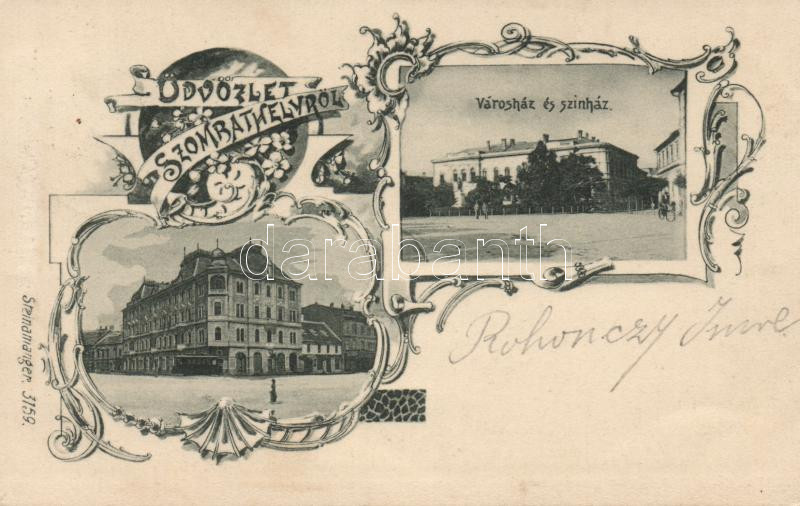 ÜDVÖZLET
SZOMBATHELYRŐL
Városház és szinház.
darabanth.com
Rohonczy Imre
Steinamanger. 3159.